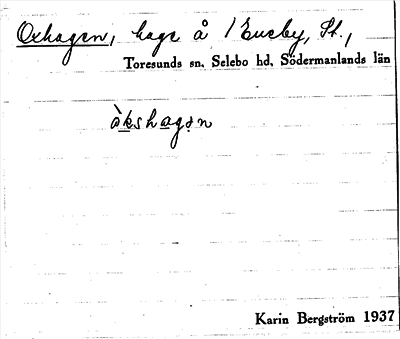 Oxhagen, hage å 1 Eneby, St.,
Toresunds sn, Selebo hd, Södermanlands län
àkshagen
Karin Bergström 1937